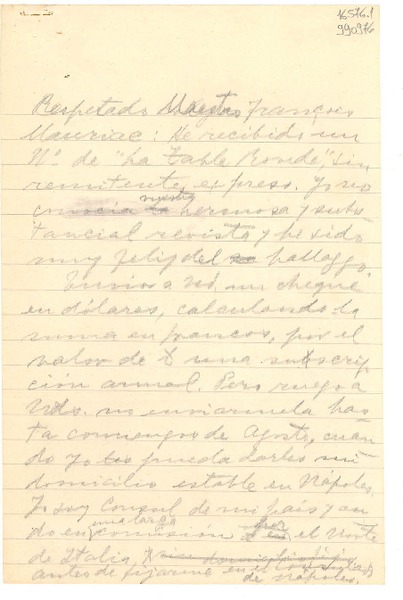 16576.1
990976
Respetado Maestro François
Mauriac: He recibido un
Nº de "La Table Ronde", sin
remitente, expreso. Yo no
conocía la nuestra hermosa y subs
tancial revista y he sido
muy feliz del hallazgo.
Envío a Ud. un cheque
en dólares, calculando la
suma en francos, por el
valor de una subscrip
ción anual. Pero ruego a
Uds. no enviármela has
ta comienzos de Agosto, cuan
do yo les pueda darles mi
domicilio estable en Nápoles.
Yo soy Consul de mi país y an
do en una larga comisión por el Norte
de Italia,
antes de fijarme en el Consulado
de Nápoles.